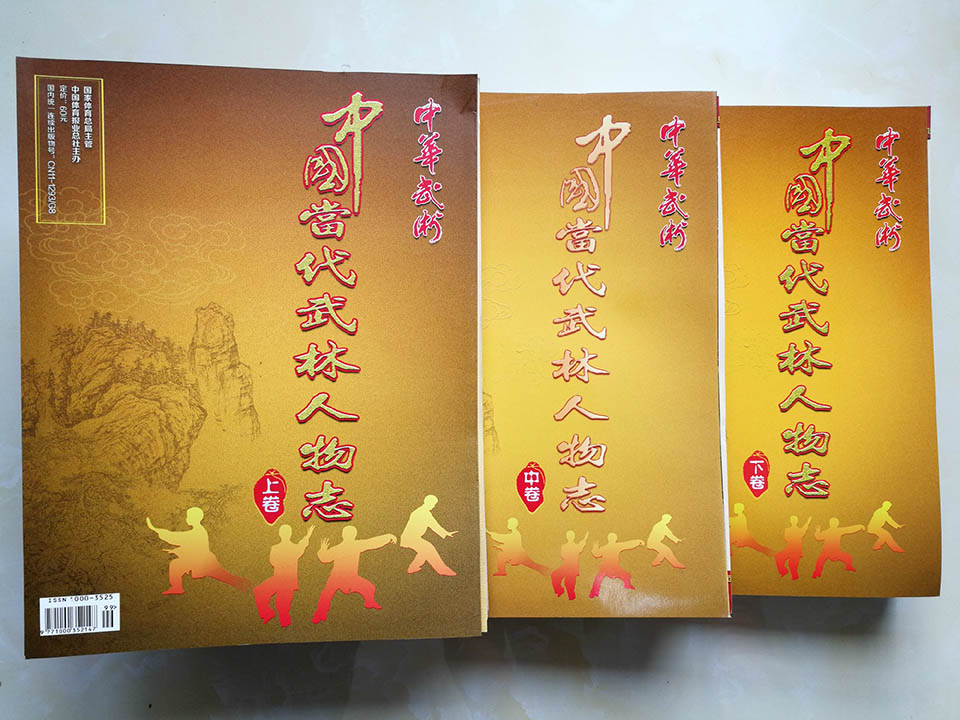 中華武術
中國當代武林人物志
上卷
国家体育总局主管
中国体育报业总社主办
定价：60元
国内统一连续出版物号：CN11-1293/G8
ISSN 1000-3525
99>
9 771000 352147
中華武術
中國當代武林人物志
中卷
中華武術
中國當代武林人物志
下卷